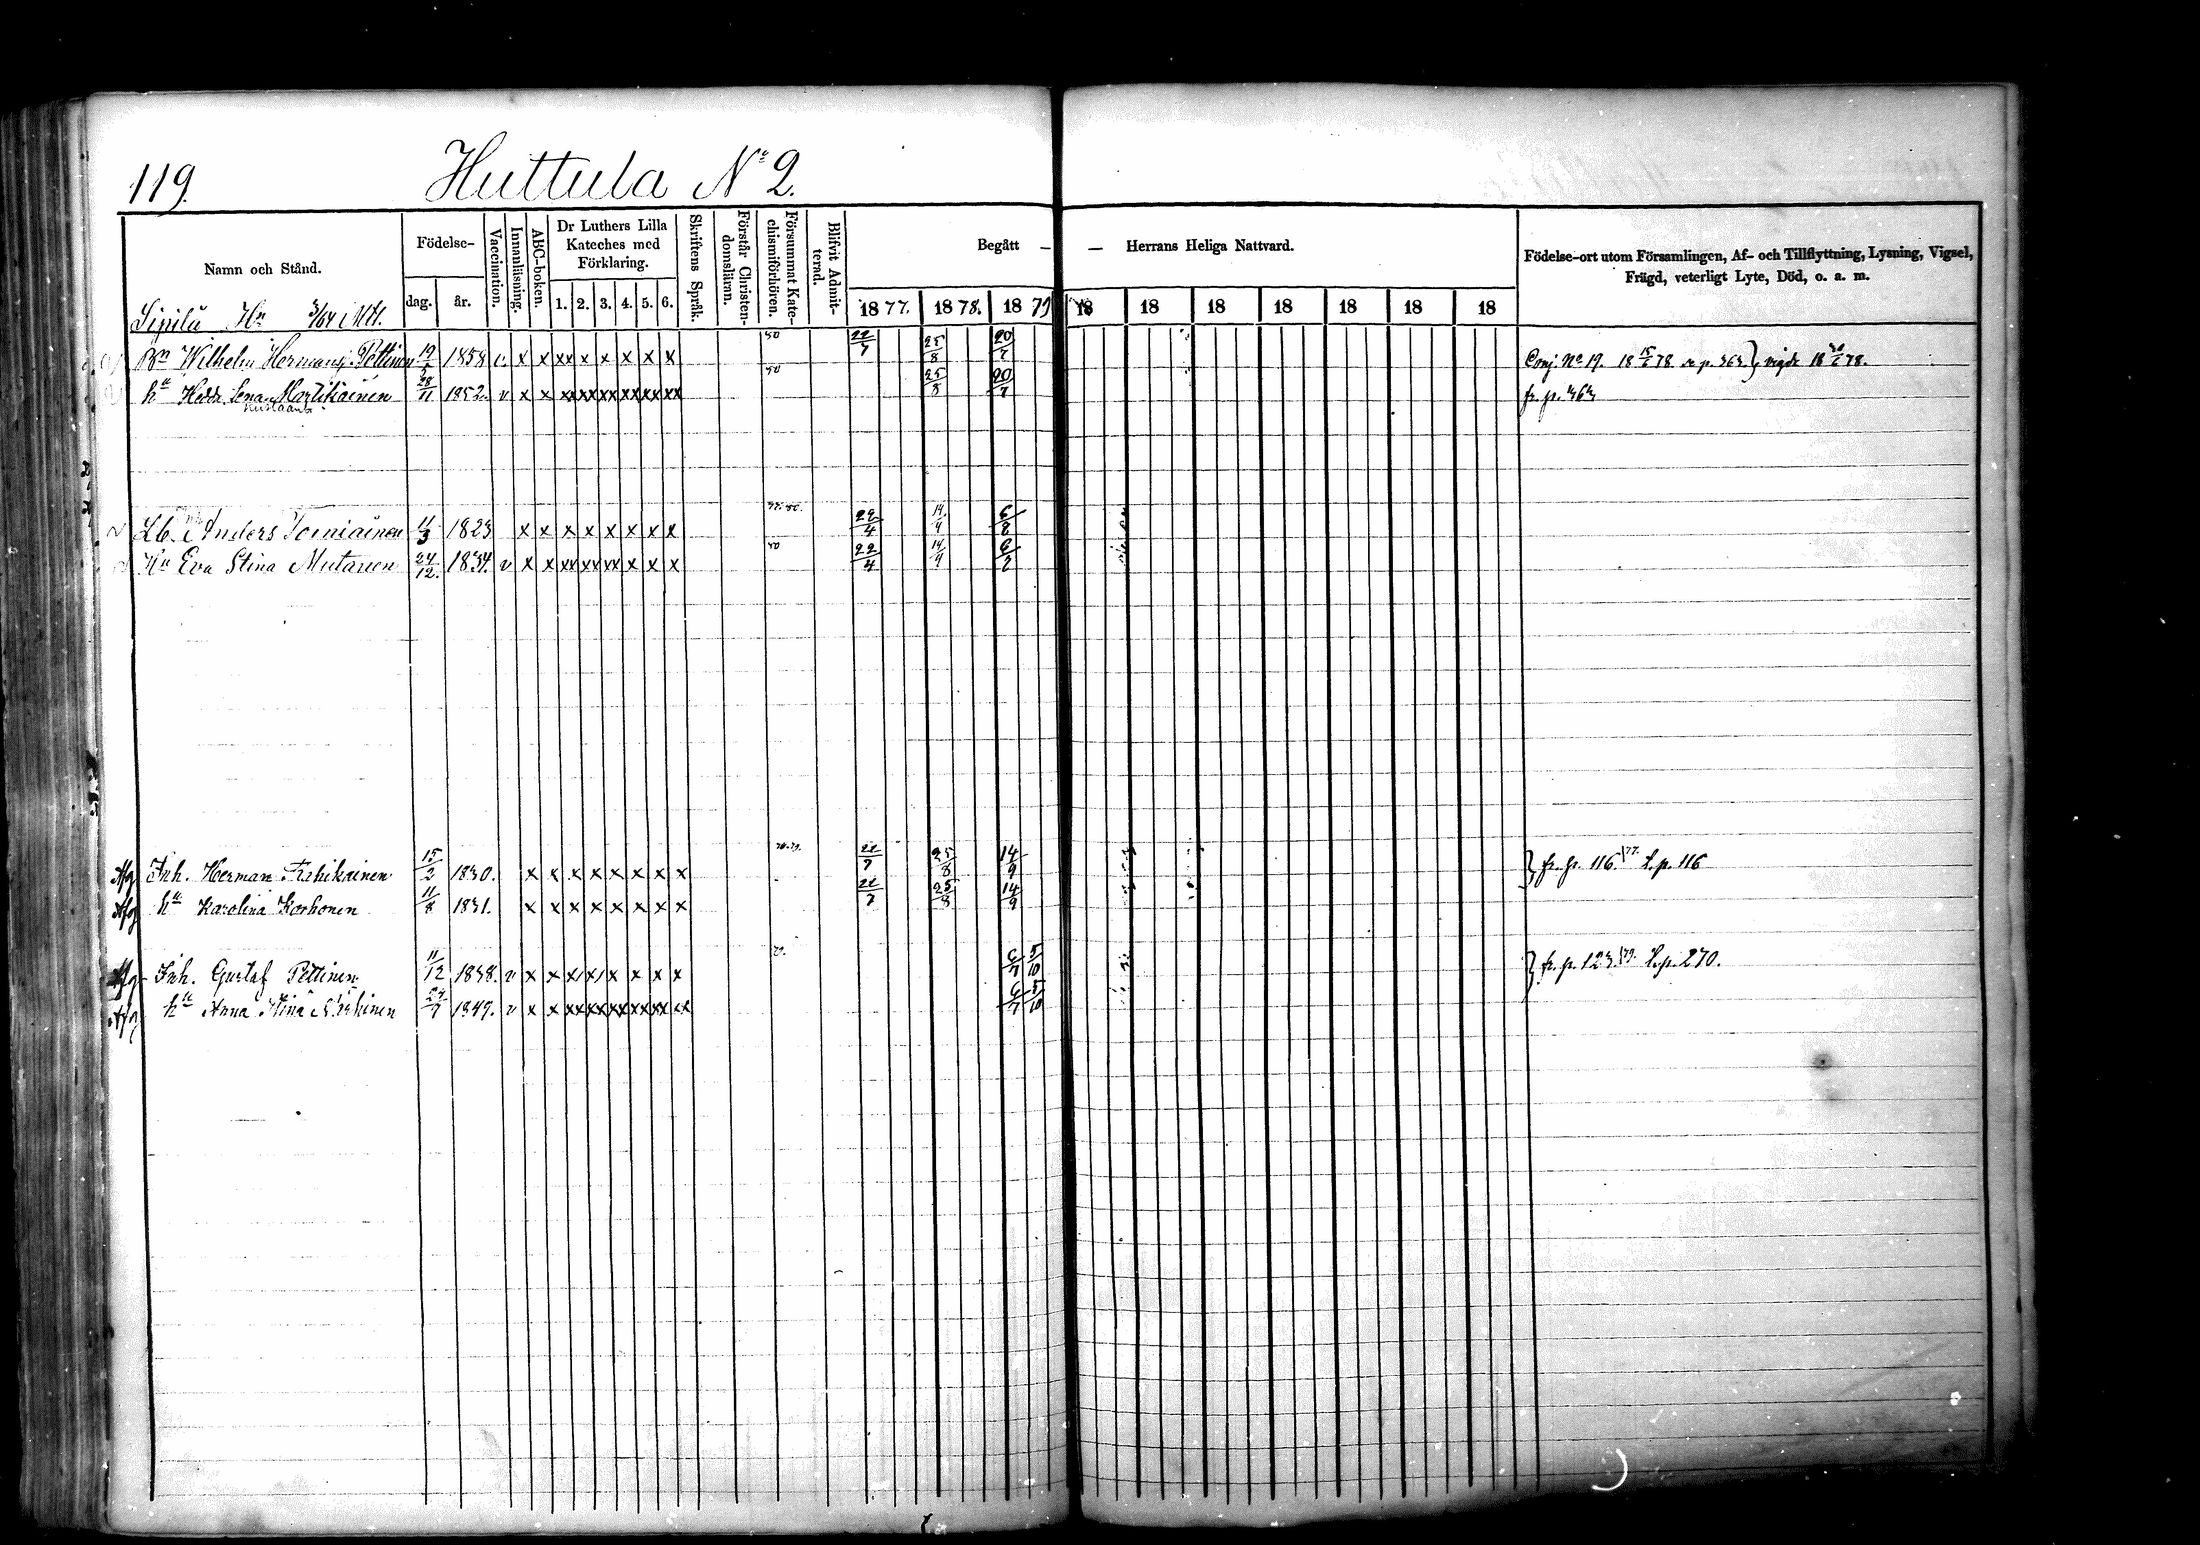 119.
Huttula No 2.
Namn och Stånd.
Födelse-
dag. år.
Vaccination.
Innanläsning.
ABC-boken.
Dr Luthers Lilla
Kateches med
Förklaring.
1. 2. 3. 4. 5. 6.
Skriftens Språk.
Förstår Christen-
domsläran.
Försummat Kate-
chismiförhören.
Blifvit Admit-
terad.
Begått — — Herrans Heliga Nattvard.
1877. 1878. 1879 18 18 18 18 18 18 18
Födelse-ort utom Församlingen, Af- och Tillflyttning, Lysning, Vigsel,
Frägd, veterligt Lyte, Död, o. a. m.
Sipilä Hn 3/64 Mtl.
Bn Wilhelm Hermansj. Pettinen 19/5 1858 v. x x xx x x x x x 50 22/7 25/8 20/7 Conj. No 19. 18 15/6 78. p. 363. } vigde 18 30/6 78.
hu Hedv. Lena Martikainen 28/11 1852. v x x xx xx xx xx xx xx 50 25/8 20/7 fr. p. 363
Lb. Anders Torniainen 11/3 1823 x x x x x x x x 22/4 14/9 6/8
Hu Eva Stina Mutanen 24/12. 1834. v x x xx xx xx x x x 22/4 14/9 6/8
Afg Inh. Herman 15/2 1830. x x x x x x x x 22/7 25/8 14/9 } fr. p. 116. 77. t. p. 116
Afg hu Karolina Korhonen 11/8 1831. x x x x x x x x 22/7 25/8 14/9
Afg Inh. Gustaf Pettinen 11/12 1838. v x x x x x x x x 6/7 5/10 } fr. p. 123. 79. t. p. 270.
Afg hu Anna Stina 24/7 1849. v x x xx xx xx xx xx xx 6/7 5/10